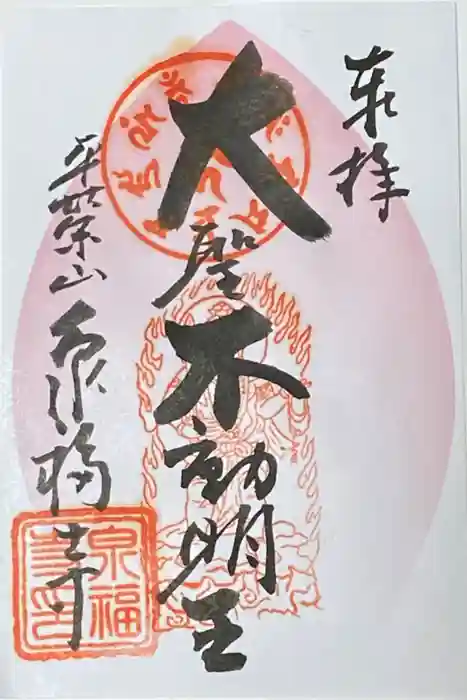 奉拝
大聖不動明王
平栄山泉福寺
泉福
寺印